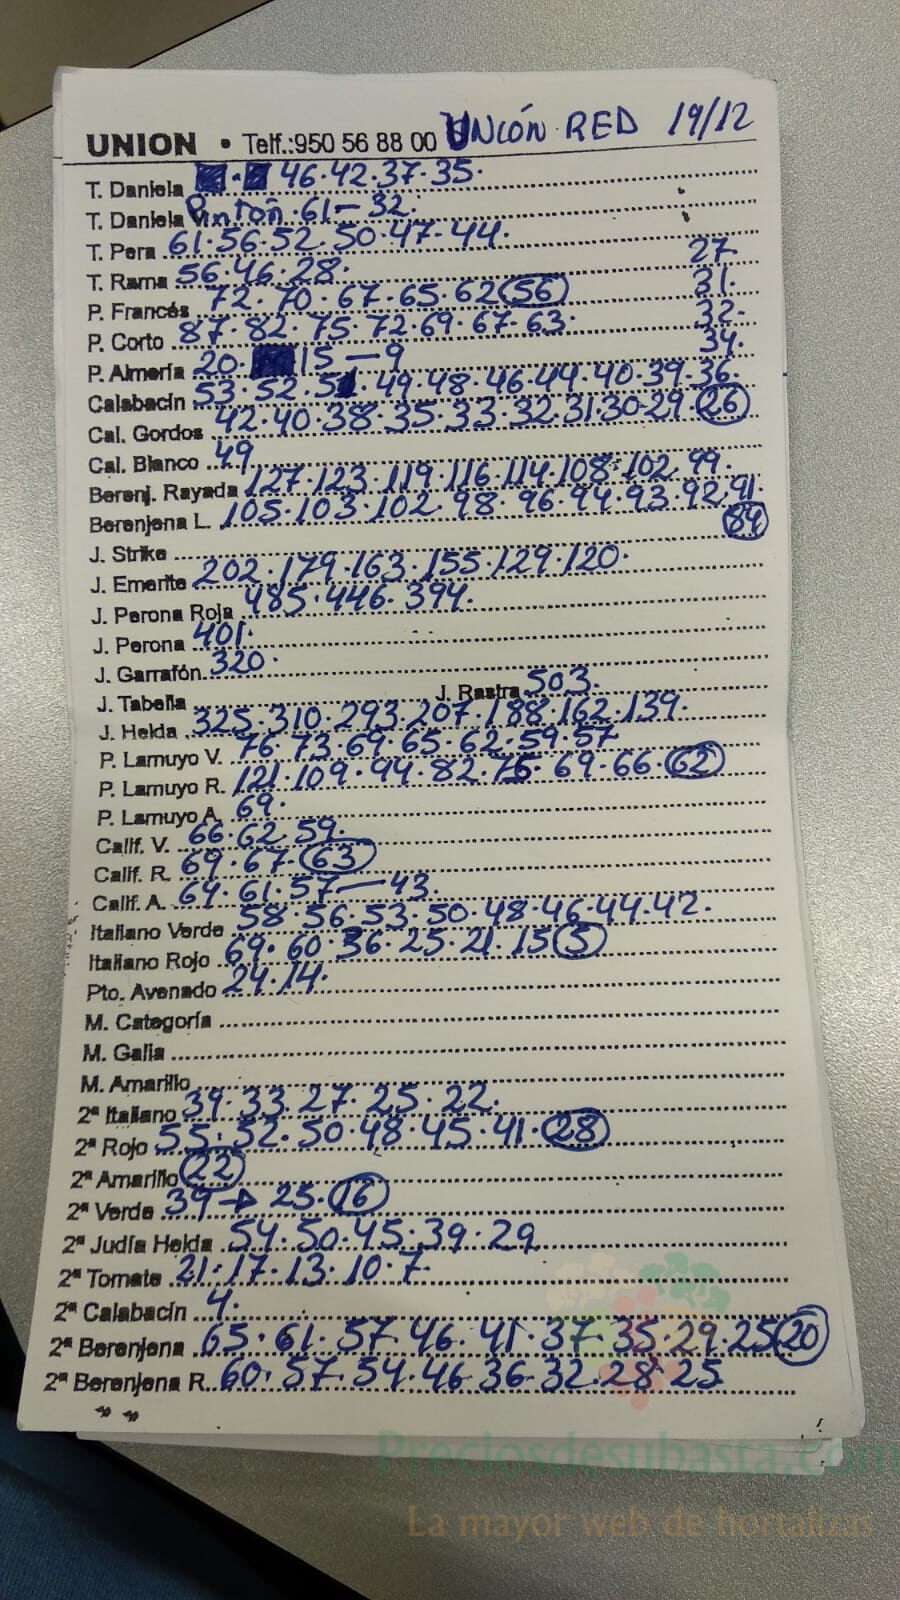 UNION • Telf.:950 56 88 00 UNIÓN RED 19/12
T. Daniela 46·42·37·35·
T. Daniela Pintón 61-32·
T. Pera 61·56·52·50·47·44·
T. Rama 56·46·28·
P. Francés 72·70·67·65·62 56
P. Corto 87·82·75·72·69·67·63·
P. Almería 20· 15-9
27·
31·
32·
34·
Calabacín 53·52·51·49·48·46·44·40·39·36·
Cal. Gordos 42·40·38·35·33·32·31·30·29· 26
Cal. Blanco 49
Berenj. Rayada 127·123·119·116·114·108·102·99·
Berenjena L. 105·103·102·98·96·94·93·92·91·
84
J. Strike
J. Emerite 202·179·163·155·129·120·
J. Perona Roja 485·446·394·
J. Perona 401·
J. Garrafón 320·
J. Tabella J. Rastra 503·
J. Helda 325·310·293·207·188·162·139·
P. Lamuyo V. 76·73·69·65·62·59·57
P. Lamuyo R. 121·109·94·82·75·69·66· 62
P. Lamuyo A. 69·
Calif. V. 66·62·59·
Calif. R. 69·67· 63
Calif. A. 64·61·57-43·
Italiano Verde 58·56·53·50·48·46·44·42·
Italiano Rojo 69·60·36·25·21·15 5
Pto. Avenado 24·14·
M. Categoría
M. Galia
M. Amarillo
2ª Italiano 39·33·27·25·22·
2ª Rojo 55·52·50·48·45·41· 28
2ª Amarillo 22
2ª Verde 39→25· 16
2ª Judía Helda 54·50·45·39·29
2ª Tomate 21·17·13·10·7·
2ª Calabacín 4·
2ª Berenjena 65·61·57·46·41·37·35·29·25 20
2ª Berenjena R. 60·57·54·46·36·32·28·25
Preciosdesubasta.com
La mayor web de hortalizas